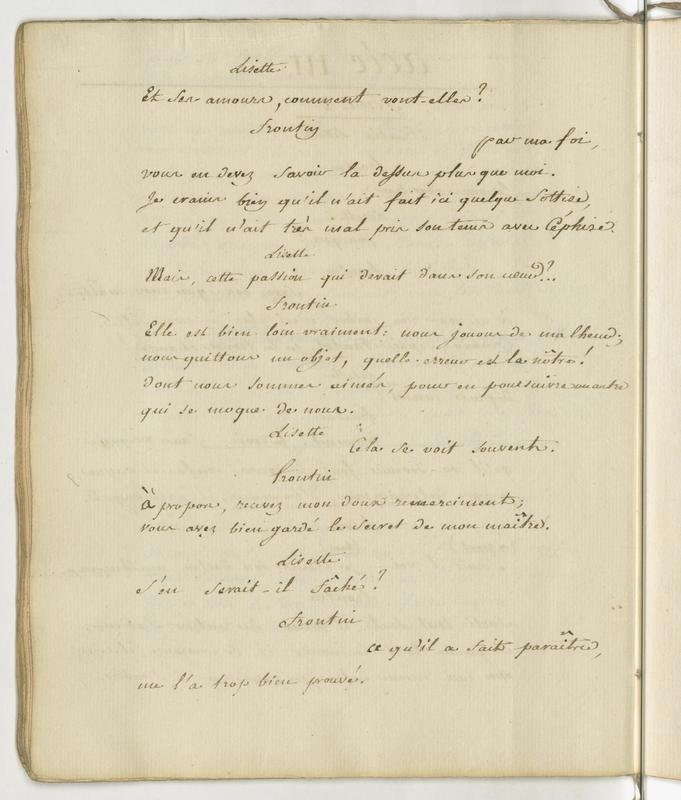 Lisette
Et ses amours, comment vont-elles ?
Frontin
par ma foi,
vous en devez savoir la dessus plus que moi.
Je crains bien qu'il n'ait fait ici quelque sottise,
et qu'il n'ait très mal pris son tems avec Céphise.
Lisette
Mais, cette passion qui devait dans son cœur ?..
Frontin.
Elle est bien loin vraiment : nous jouons de malheur ;
nous quittons un objet, quelle erreur est la nôtre !
dont nous sommes aimés, pour en poursuivre un autre
qui se moque de nous.
Lisette
Cela se voit souvent.
Frontin
à propos, recevez mon doux remerciment ;
vous avez bien gardé le secret de mon maître.
Lisette
s'en serait-il fâché ?
Frontin
ce qu'il a fait paraître,
me l'a trop bien prouvé.